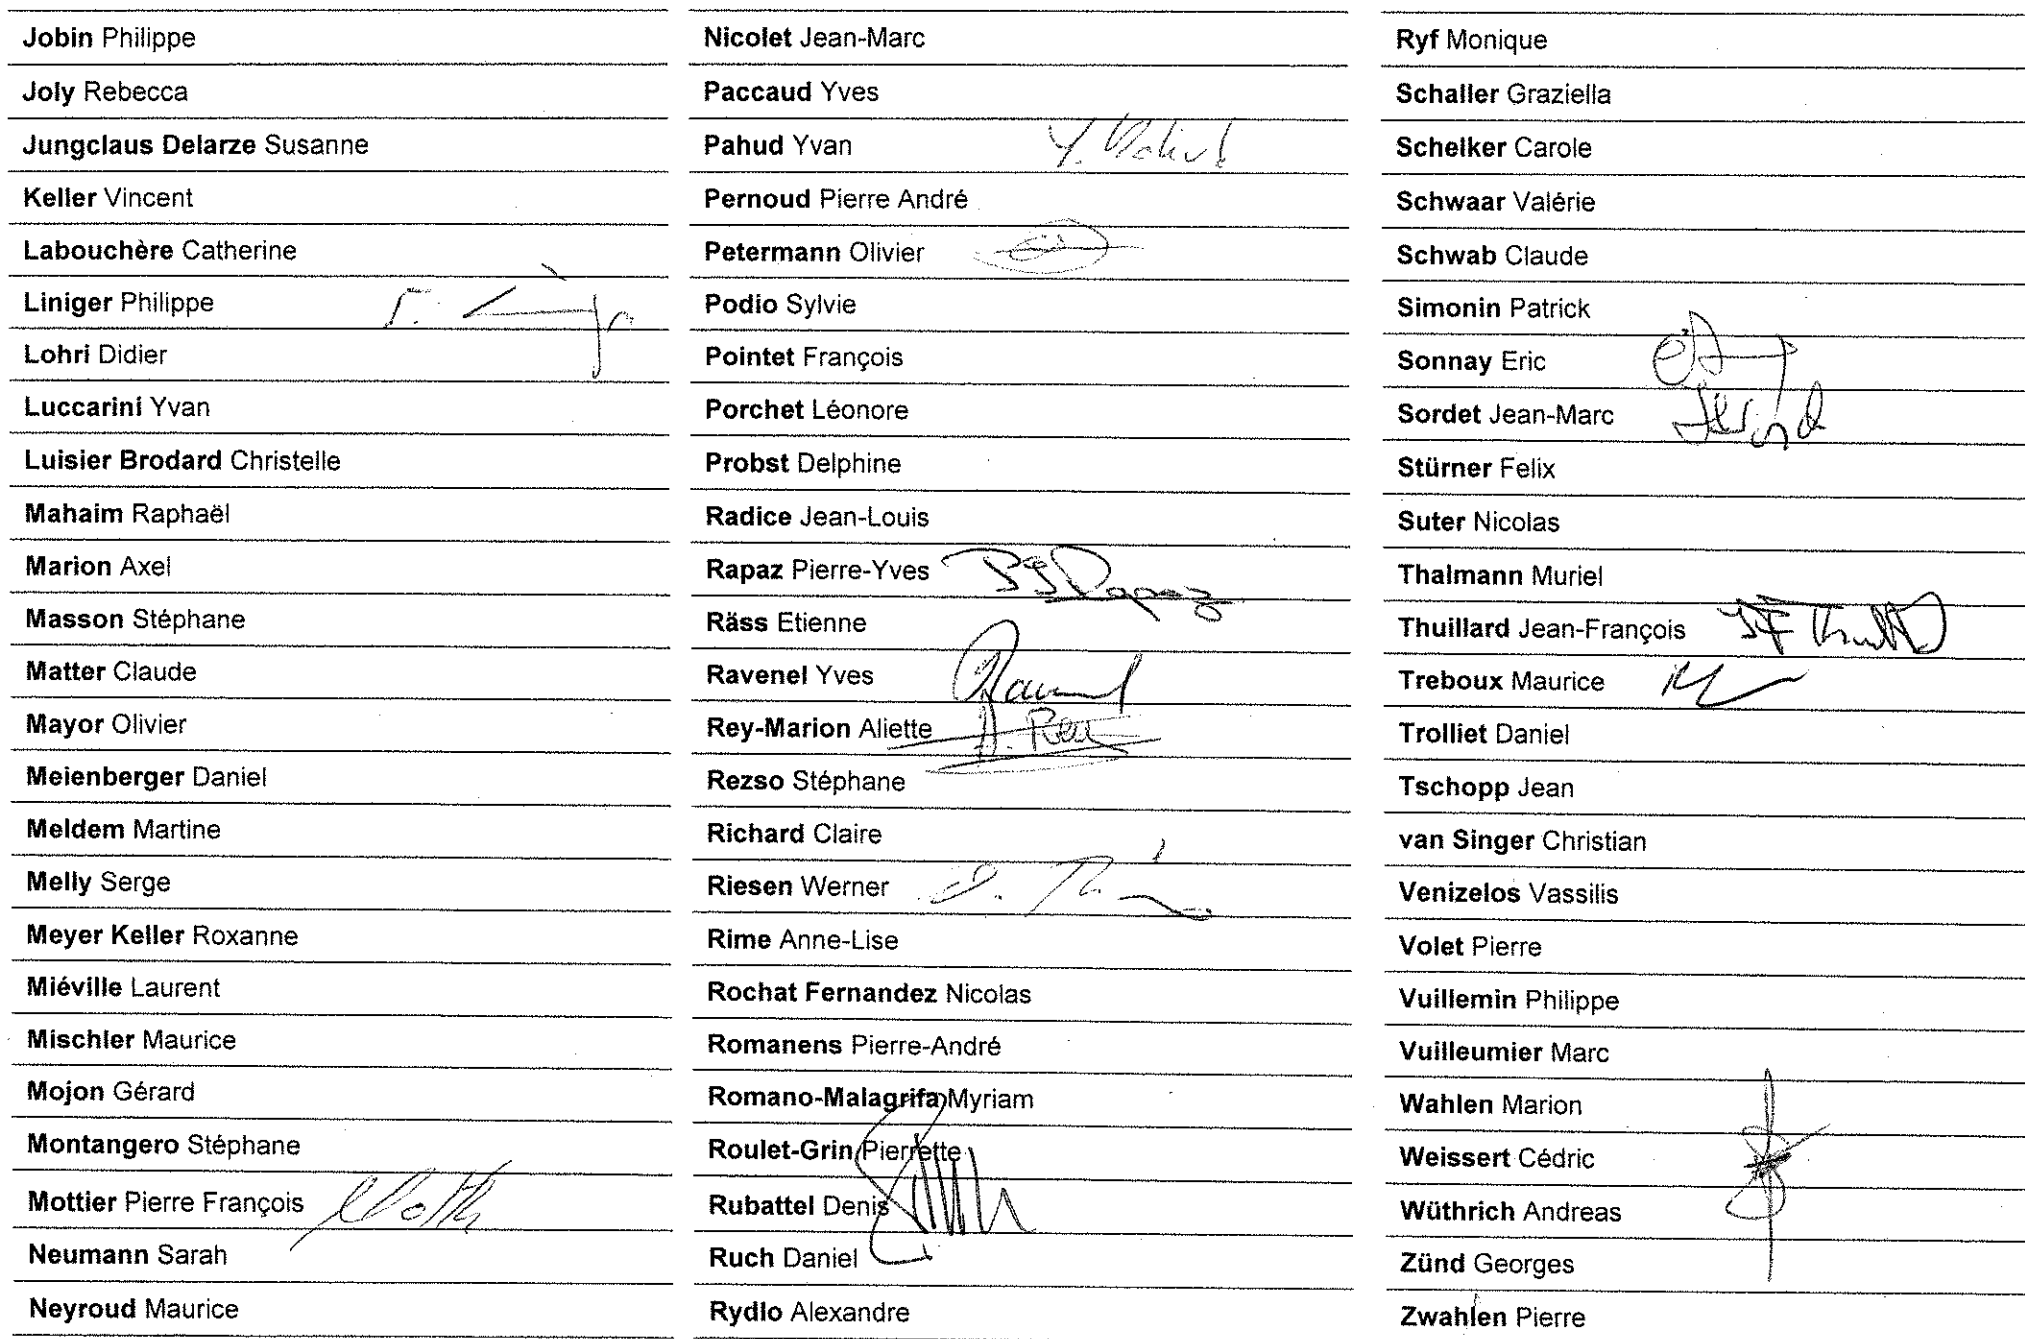 Jobin Philippe
Joly Rebecca
Jungclaus Delarze Susanne
Keller Vincent
Labouchère Catherine
Liniger Philippe
Lohri Didier
Luccarini Yvan
Luisier Brodard Christelle
Mahaim Raphaël
Marion Axel
Masson Stéphane
Matter Claude
Mayor Olivier
Meienberger Daniel
Meldem Martine
Melly Serge
Meyer Keller Roxanne
Miéville Laurent
Mischler Maurice
Mojon Gérard
Montangero Stéphane
Mottier Pierre François
Neumann Sarah
Neyroud Maurice
Nicolet Jean-Marc
Paccaud Yves
Pahud Yvan
Pernoud Pierre André
Petermann Olivier
Podio Sylvie
Pointet François
Porchet Léonore
Probst Delphine
Radice Jean-Louis
Rapaz Pierre-Yves PYRapaz
Räss Etienne
Ravenel Yves Ravenel
Rey-Marion Aliette A. Rey
Rezso Stéphane
Richard Claire
Riesen Werner
Rime Anne-Lise
Rochat Fernandez Nicolas
Romanens Pierre-André
Romano-Malagrifa Myriam
Roulet-Grin Pierrette
Rubattel Denis
Ruch Daniel
Rydlo Alexandre
Ryf Monique
Schaller Graziella
Schelker Carole
Schwaar Valérie
Schwab Claude
Simonin Patrick
Sonnay Eric
Sordet Jean-Marc
Stürner Felix
Suter Nicolas
Thalmann Muriel
Thuillard Jean-François
Treboux Maurice
Trolliet Daniel
Tschopp Jean
van Singer Christian
Venizelos Vassilis
Volet Pierre
Vuillemin Philippe
Vuilleumier Marc
Wahlen Marion
Weissert Cédric
Wüthrich Andreas
Zünd Georges
Zwahlen Pierre